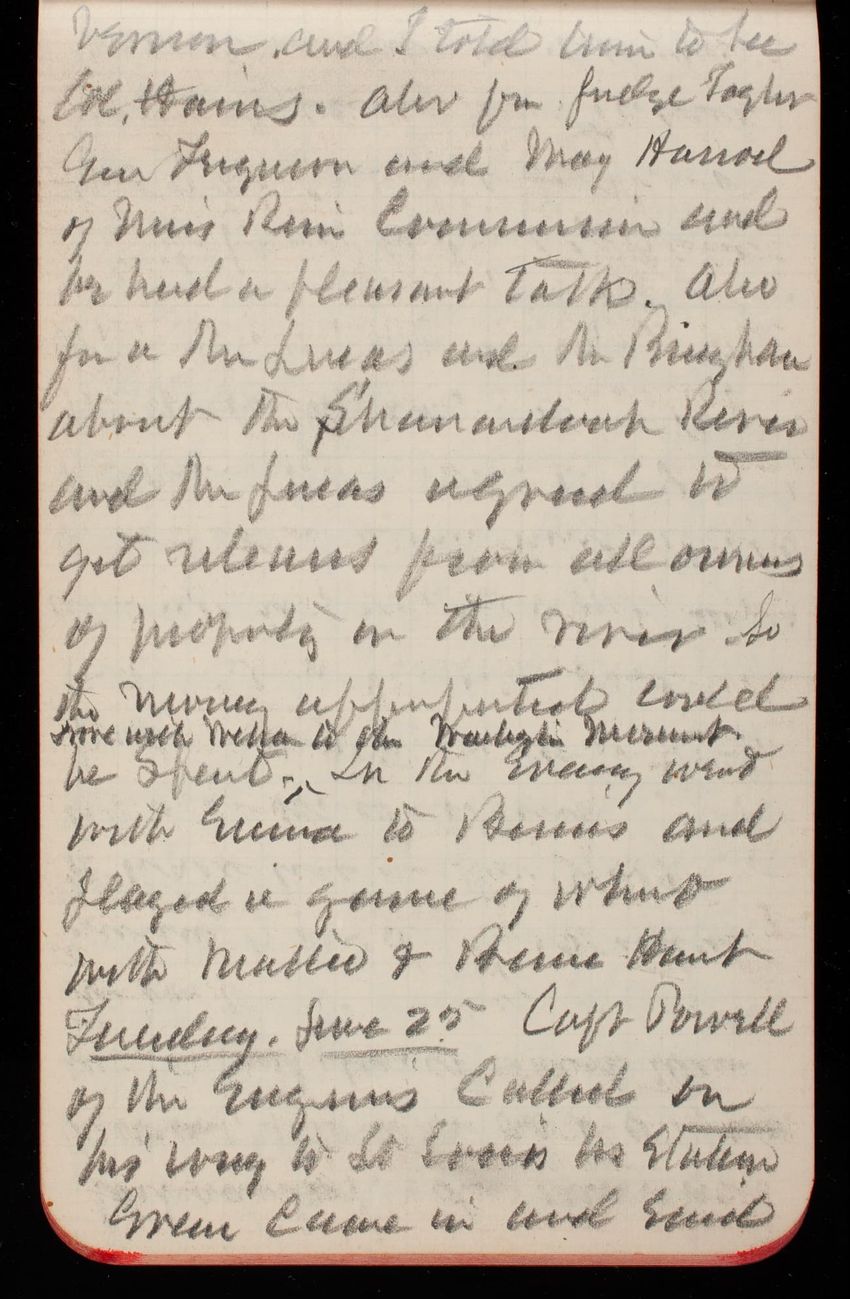 Vernon, and I told him to see
Col, Hains. Also saw Judge Taylor
Gen Ferguson and Maj Harrod
of Miss River Commission and
we had a pleasant talk. Also
saw a Mr Lucas and Mr Bingham
about the Shanandoah River
and Mr Lucas agreed to
get releases from all owners
of property on the river So
the money appropriated could
drove with Nettie to the Washington Monument.
be spent. ^ In the Evening went
with Emma to Berries and
played a game of whist
with Mattie & Hunt
Tuesday. June 25 Capt Powell
of the Engineers Called on
his way to St Louis his Station
Green came in and said